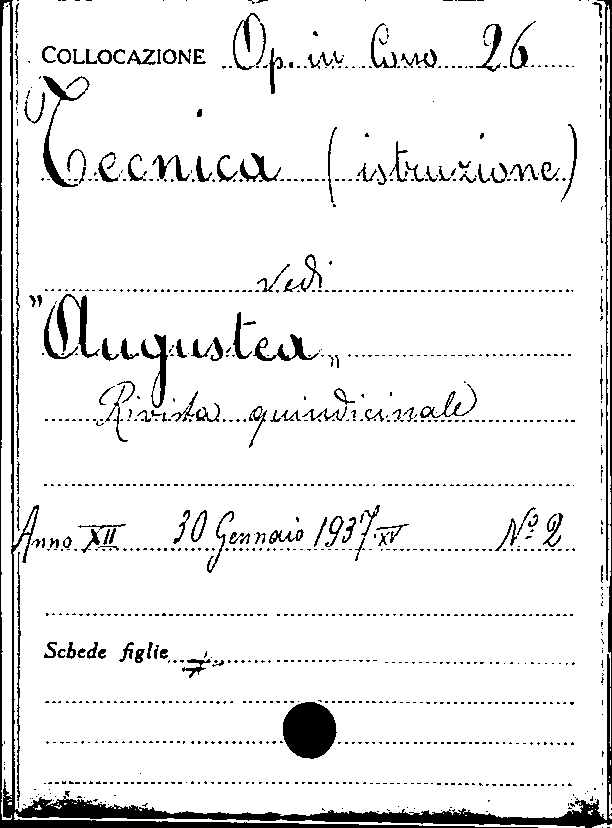 COLLOCAZIONE Op. in Corso 26
Tecnica (istruzione)
vedi
"Augustea"
Rivista quindicinale
Anno XII 30 Gennaio 1937·XV Nº 2
Schede figlie